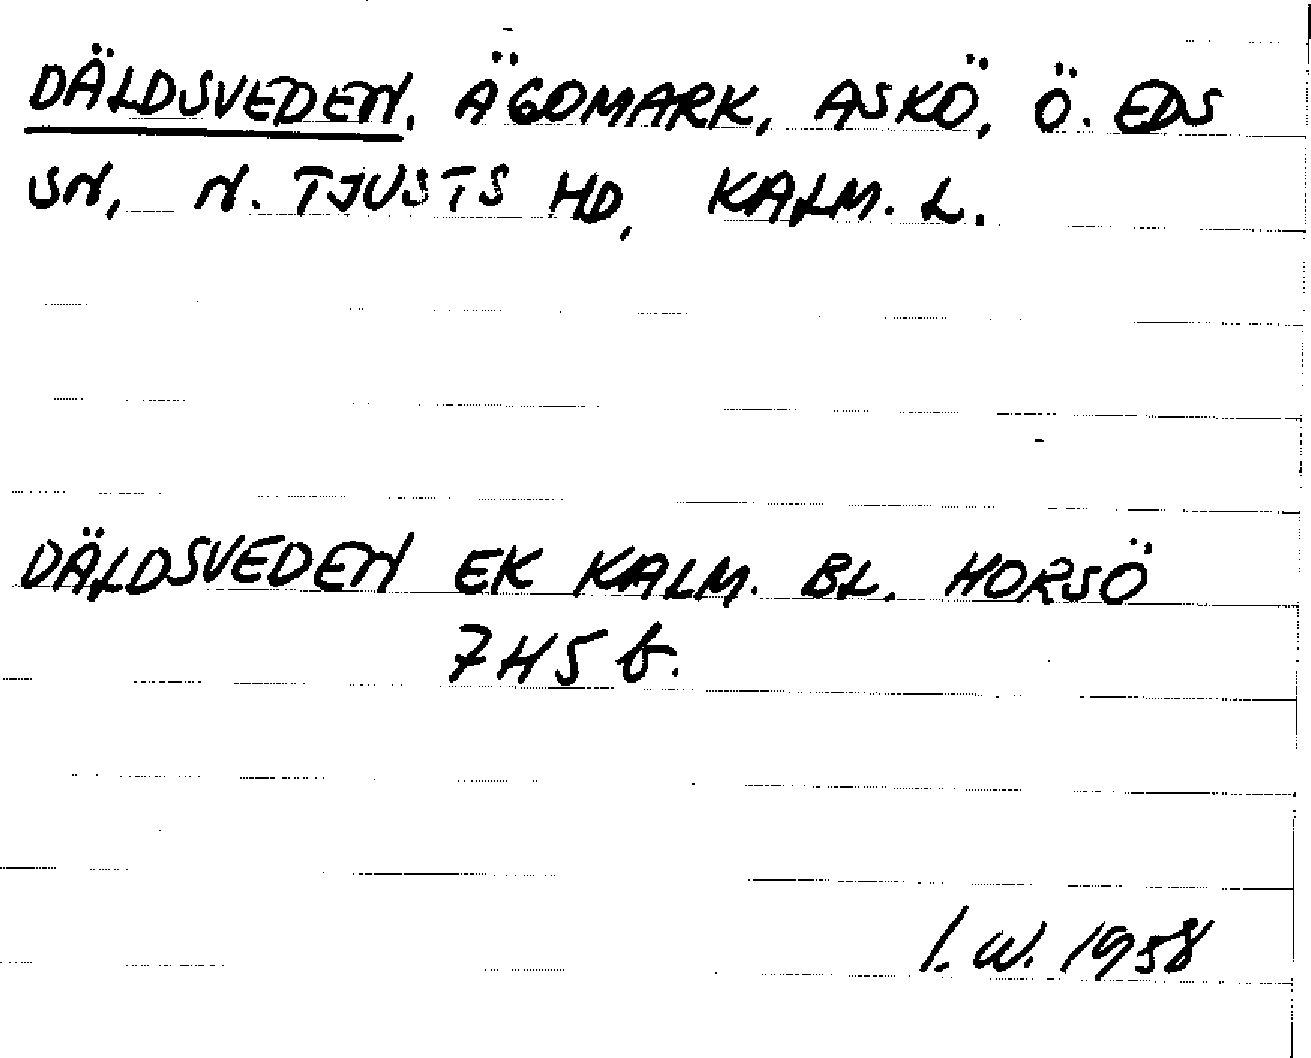 DÄLDSVEDEN. ÄGOMARK, ASKÖ, Ö. EDS
SN, N. TJUSTS HD, KALM. L.
DÄLDSVEDEN EK KALM. BL. HORSÖ
7H5b.
I.W. 1958